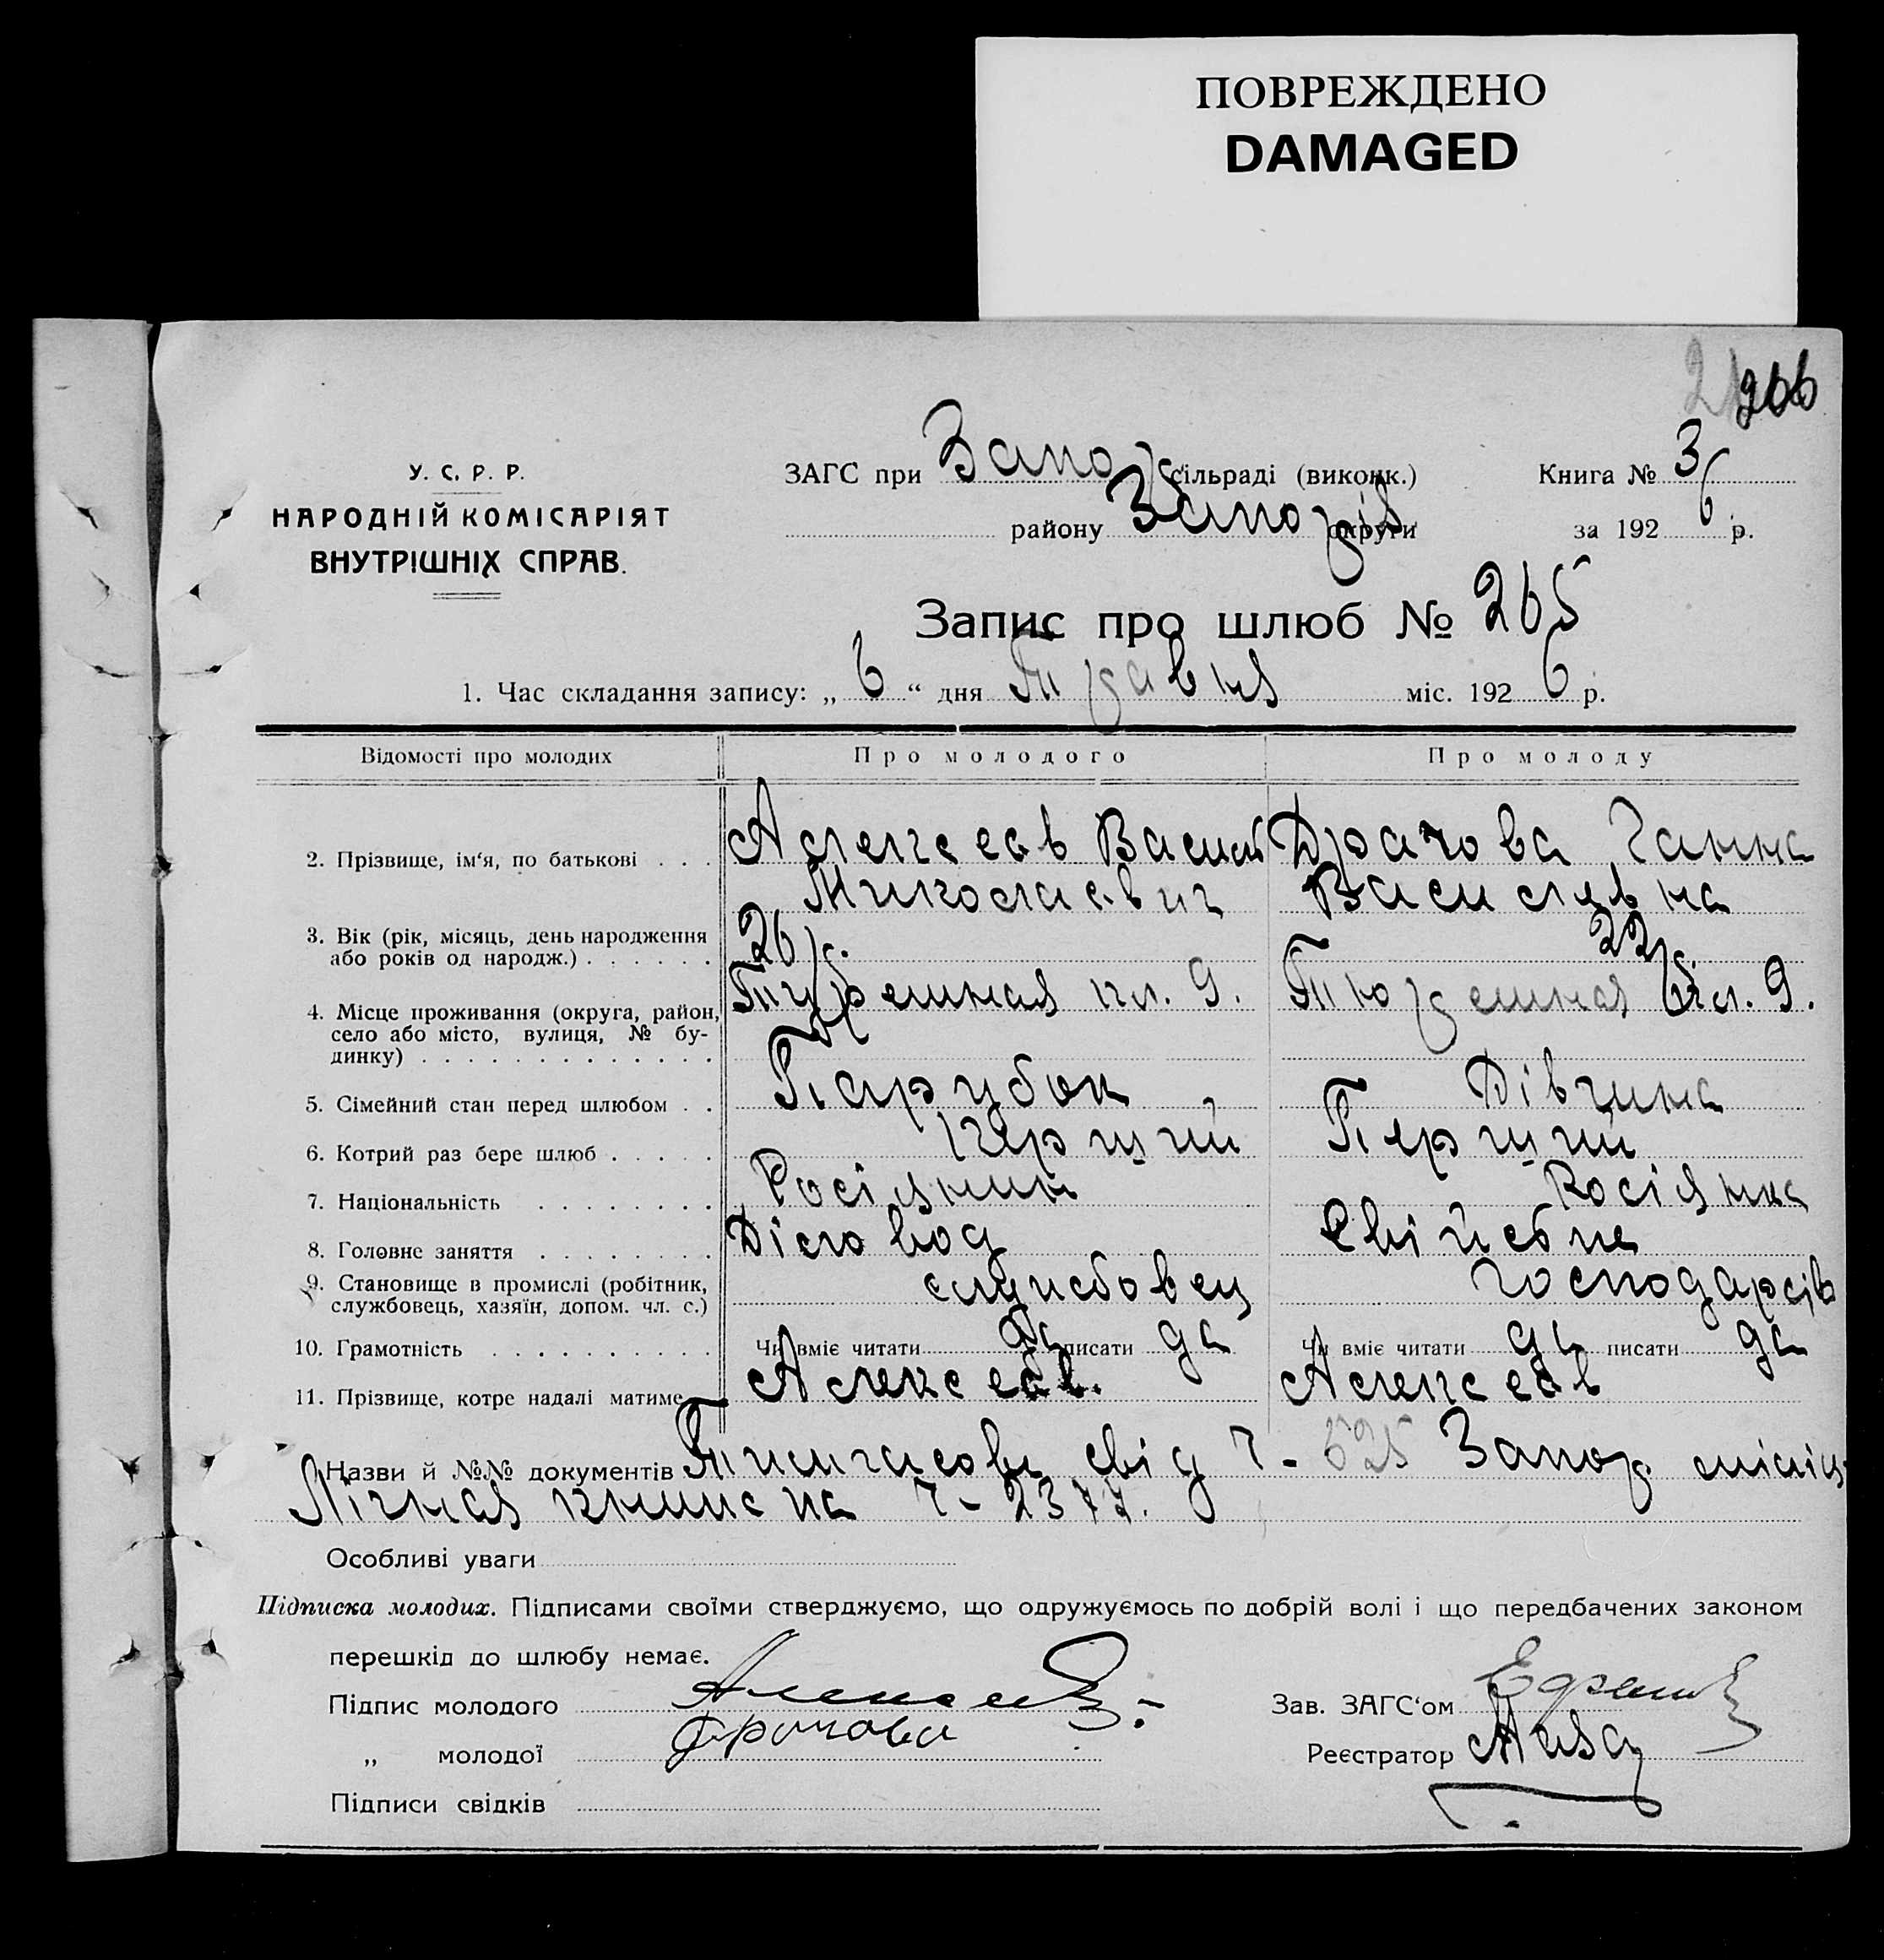 ПОВРЕЖДЕНО
DAMAGED
206
У. С. Р. Р.
НАРОДНІЙ КОМІСАРІЯТ
ВНУТРІШНІХ СПРАВ.
ЗАГС при Запор сільраді (виконк.) Книга № 3
району Запоріз округи за 192 6 р.
Запис про шлюб № 265
1. Час складання запису: „ 6 “ дня Травня міс. 192 6 р.
Відомості про молодих Про молодого Про молоду
2. Прізвище, ім‘я, по батькові . . . Алексеєв Василь Драчова Ганна
Миколаєвич Василевна
3. Вік (рік, місяць, день народження
або років од народж.) . . . . . . 26 р. 22 р.
4. Місце проживання (округа, район, Тюремная пл. 9. Тюремная пл. 9.
село або місто, вулиця, № бу-
динку) . . . . . . . . . . . . .
5. Сімейний стан перед шлюбом . . Парубок Дівчина
6. Котрий раз бере шлюб . . . . . Перший Перший
7. Національність . . . . . . . . Росіянин Росіянка
8. Головне заняття . . . . . . . . Діловод Свійсбке
9. Становище в промислі (робітник,
службовець, хазяїн, допом. чл. с.) служсбовец господарсів
10. Грамотність . . . . . . . . . . Чи вміє читати да писати да Чи вміє читати да писати да
11. Прізвище, котре надалі матиме Алексеєв. Алексеєв
Назви й №№ документів Тимчасове свід ч - 625 Запор міліц
Лічная книжска ч - 2377.
Особливі уваги
Підписка молодих. Підписами своїми стверджуємо, що одружуємось по добрій волі і що передбачених законом
перешкід до шлюбу немає.
Підпис молодого Алексеев Зав. ЗАГС‘ом
„ молодої Драчова Реєстратор
Підписи свідків